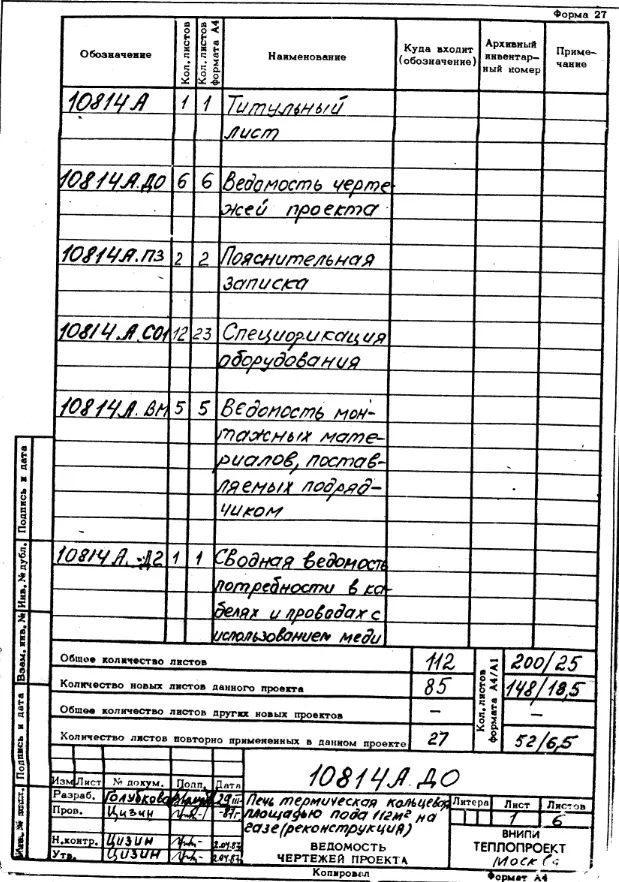 Форма 27
Обозначение Кол. листов Кол. листов формата А4 Наименование Куда входит (обозначение) Архивный инвентарный номер Примечание
10814А 1 1 Титульный
лист
10814А.ДО 6 6 Ведомость черте
жей проекта
10814А.ПЗ 2 2 Пояснительная
записка
10814.А.СО1 12 23 Спецификация
оборудования
10814А.ВМ 5 5 Ведомость мон-
тажных мате-
риалов, постав-
ляемых подряд-
чиком
10814А.-Д2 1 1 Сводная ведомость
потребности в ка-
белях и проводах с
использованием меди
Общее количество листов 112 Кол. листов формата А4/А1 200/25
Количество новых листов данного проекта 85 148/18,5
Общее количество листов других новых проектов – –
Количество листов повторно примененных в данном проекте 27 52/6,5
Подпись и дата
Инв. № дубл.
Взам. инв. №
Подпись и дата
Инв. № подл.
10814А.ДО
Изм Лист № докум. Подп. Дата
Разраб. Голубкова 29.III-
Пров. Цизин -87г.
Н.контр. Цизин 2.04.87
Утв. Цизин 2.04.87
Печь термическая кольцевая
площадью пода 112м² на
газе (реконструкция)
ВЕДОМОСТЬ
ЧЕРТЕЖЕЙ ПРОЕКТА
Литера Лист Листов
1 6
ВНИПИ
ТЕПЛОПРОЕКТ
Москва
Копировал Формат А4